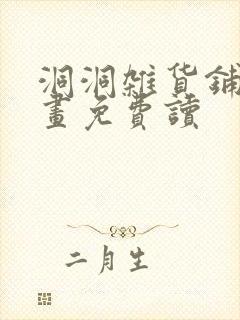 洞洞雜貨鋪
畫免費讀
二月生